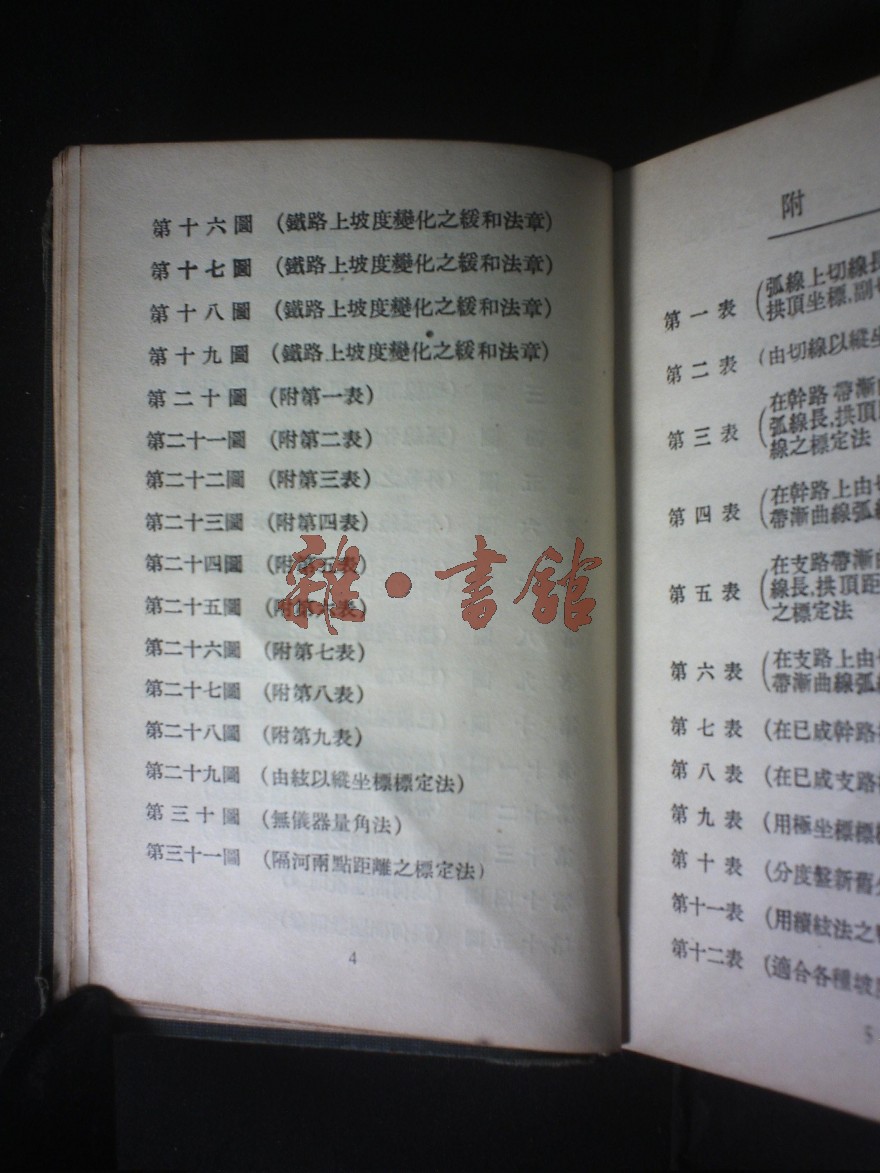 第十六圖 (鐵路上坡度變化之緩和法章)
第十七圖 (鐵路上坡度變化之緩和法章)
第十八圖 (鐵路上坡度變化之緩和法章)
第十九圖 (鐵路上坡度變化之緩和法章)
第二十圖 (附第一表)
第二十一圖 (附第二表)
第二十二圖 (附第三表)
第二十三圖 (附第四表)
第二十四圖 (附第五表)
第二十五圖 (附第六表)
第二十六圖 (附第七表)
第二十七圖 (附第八表)
第二十八圖 (附第九表)
第二十九圖 (由絃以縱坐標標定法)
第三十圖 (無儀器量角法)
第三十一圖 (隔河兩點距離之標定法)
4
雜·書館
附
第一表 (弧線上切線長
拱頂坐標,副切
第二表 (由切線以縱坐
第三表 (在幹路帶漸曲
弧線長,拱頂
線之標定法
第四表 (在幹路上由切
帶漸曲線弧線
第五表 (在支路帶漸曲
線長,拱頂距
之標定法
第六表 (在支路上由切
帶漸曲線弧線
第七表 (在已成幹路
第八表 (在已成支路
第九表 (用極坐標標
第十表 (分度盤新舊分
第十一表 (用續絃法之
第十二表 (適合各種坡度
5